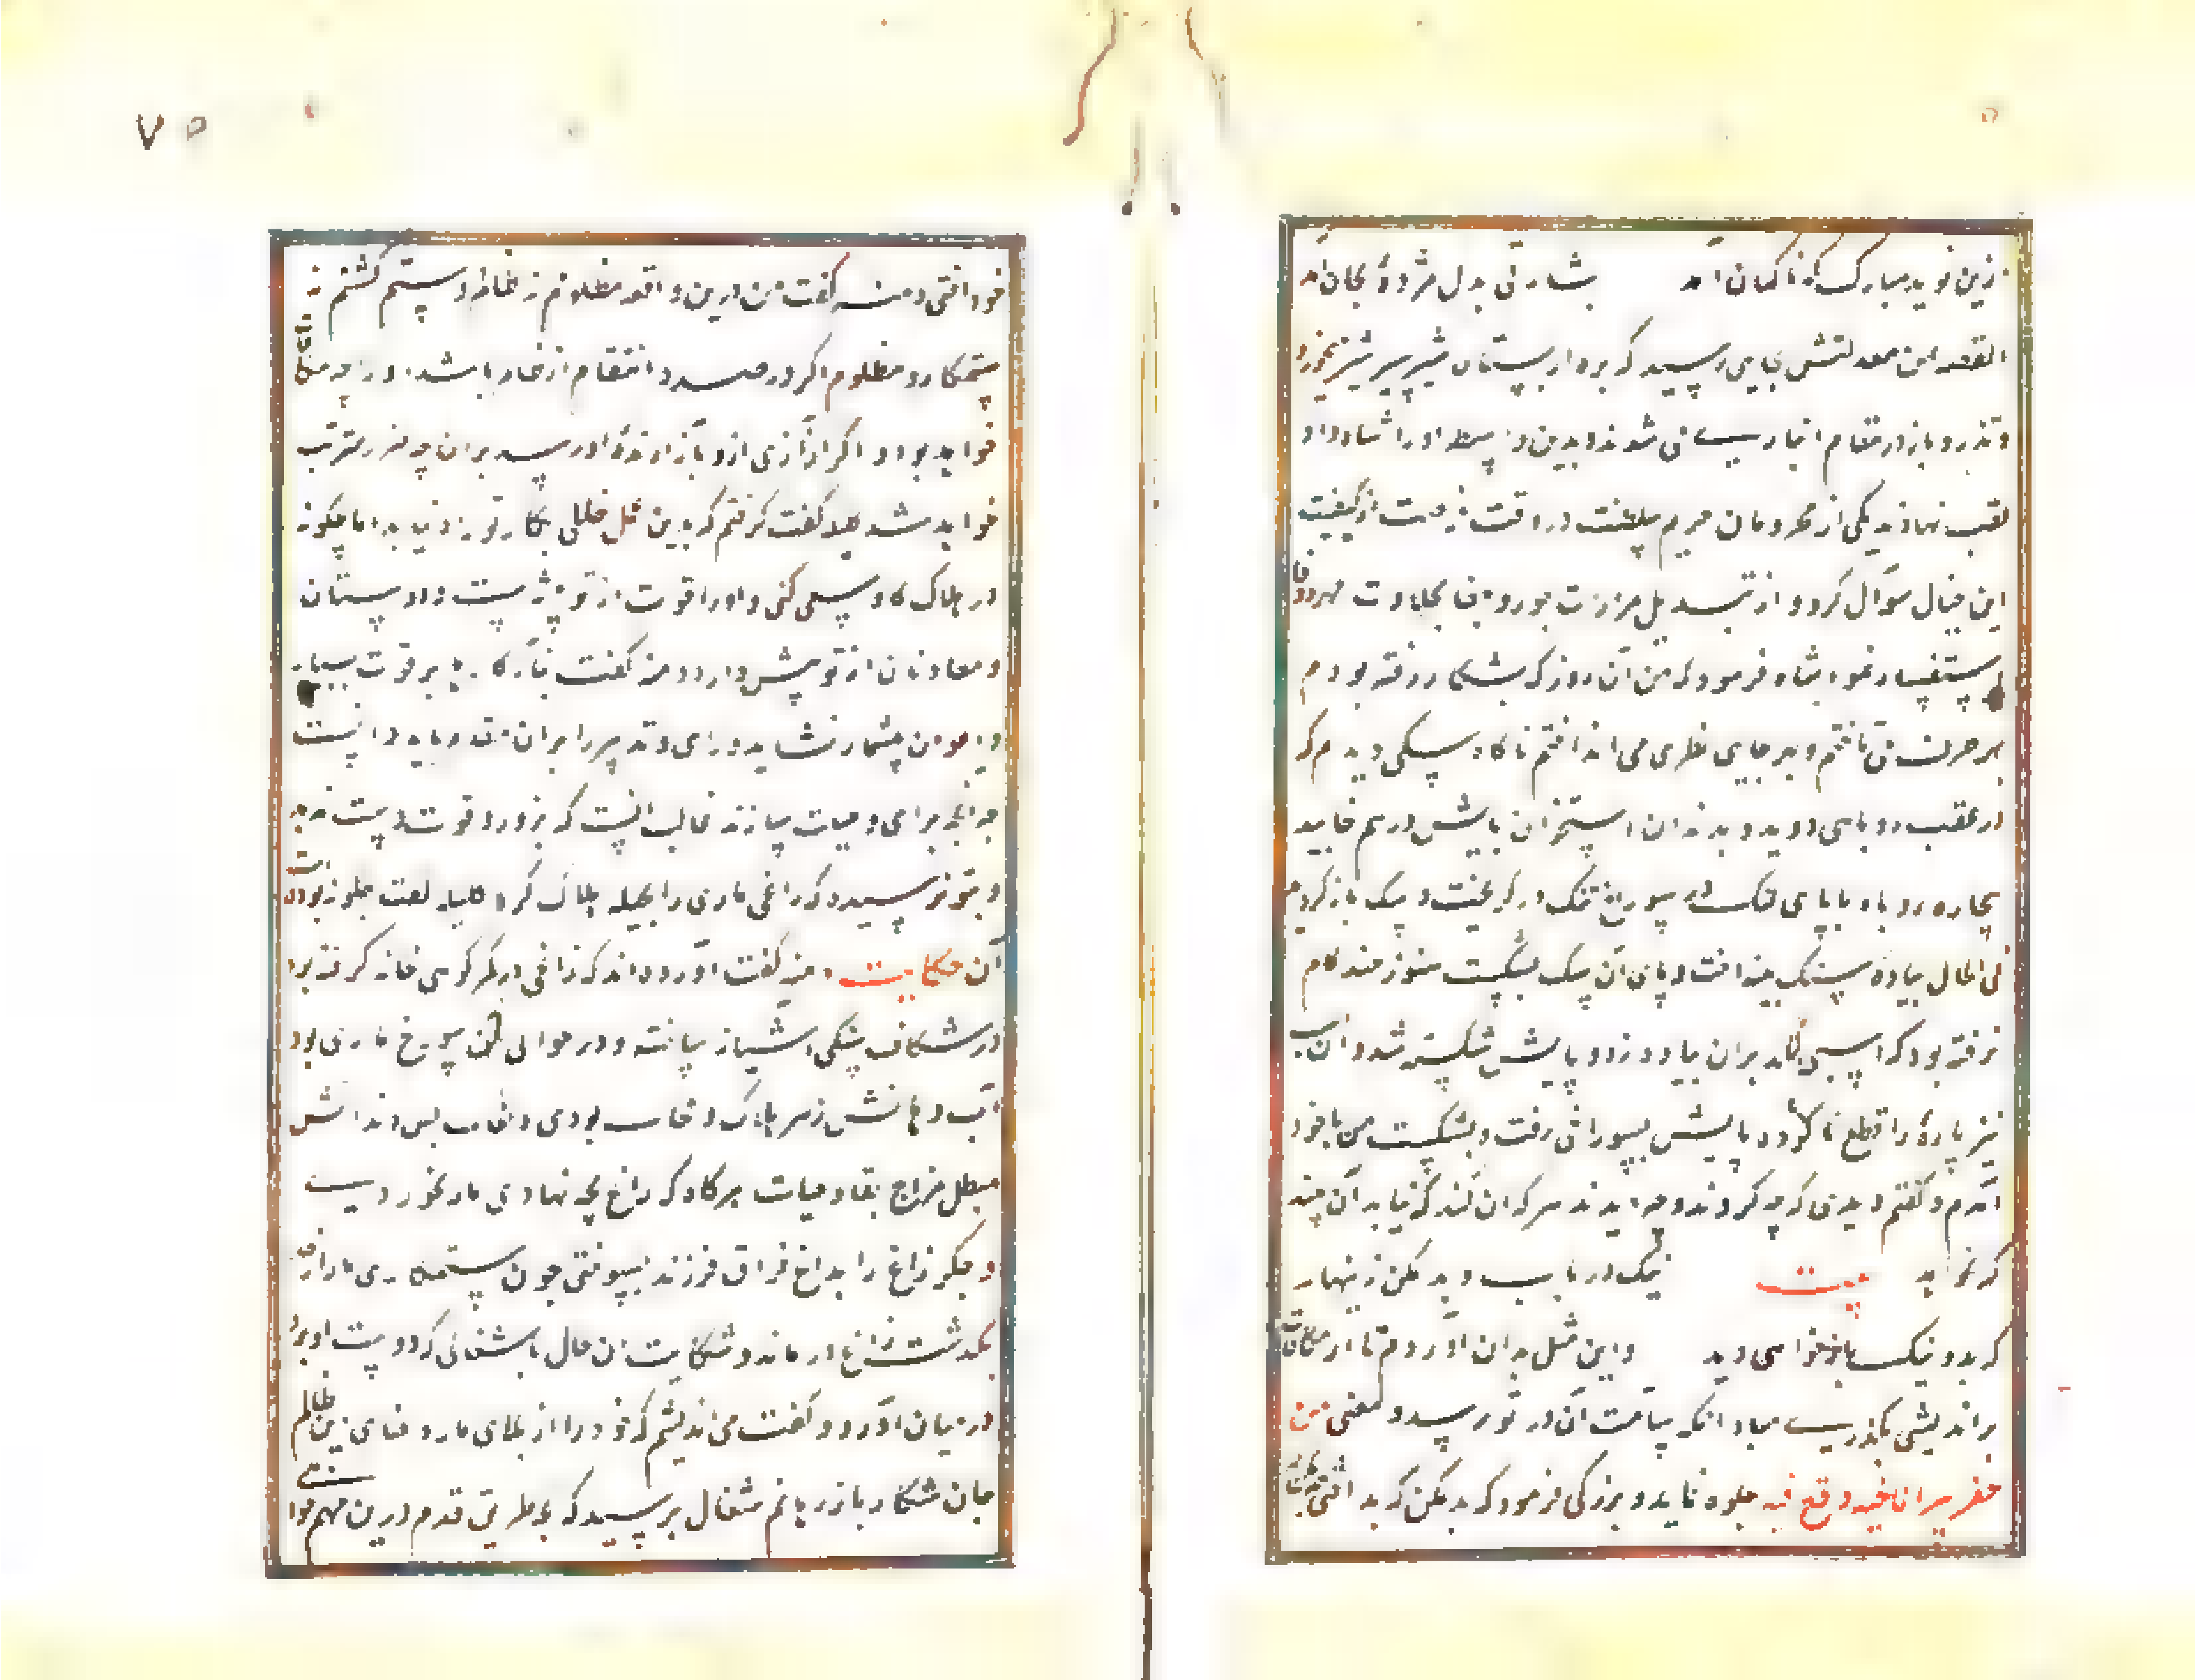 ازین نوید مبارک که ناگهان آمد بشارتی بدل مژدهٔ بجان آمد
القصه امن معدلتش بجایی رسید که بره از پستان شیر سیر شیر میخورد
و تذرو باز در مقام انبار بسانی شدند و بدین واسطه او را شاه داد
لقب نهادند یکی از محرومان حریم سلطنت در وقت فرصت از کیفیت
این خیال سوال کرد و از تبدیل مرارت جور و جفا بحلاوت مهر و وفا
استفسار نمود شاه فرمود که من آن روز که بشکار رفته بودم
بهر طرف می تاختم و بهر جایی نظری می انداختم ناگاه سگی دیدم که
در عقب روباهی دوید و بدندان استخوان پایش در هم خایید
بیچاره روباه با پای لنگ در سوراخ تنک در گریخت و سک باز گردید
فی الحال پیاده سنگ بینداخت و پای آن سک بشکست هنوز چند گام
نرفته بود که اسبی لگد بران پیاده زد و پایش شکسته شد و آن اسب
نیز پارهٔ راه قطع ناکرده پایش بسوراخی رفت و بشکست من با خود
آمدم و گفتم دیدی که چه کردند و چه دیدند هر که آن کند که نباید آن بیند
که نخواهد بیت نیک دریاب و بد مکن زینهار
که بد و نیک باز خواهی دید و این مثل بدان آوردم تا از مکافات
بر اندیشی بگذری مبادا که شامت آن در تو رسد و معنی من
حفر بیرا لاخیه وقع فیه جلوه نماید و بزرگی فرمود که بد مکن که بد افتی
خود افتی دمنه گفت من درین واقعه مظلومم نه ظالم و ستم کشم نه
ستمکار و مظلوم اگر در صدد انتقام از ظالم باشد او را چه
خواهد بود و اگر آزاری ازو بآزارندهٔ او رسد بران چه ضرر مترتب
خواهد شد کلیله گفت گرفتم که بدین عمل خللی بکار تو راه نیابد اما چگونه
در هلاک گاو سعی کنی و او را قوت از تو بیشست و دوستان
و معاونان از تو بیش دارد دمنه گفت بنای کارها بر قوت بسیار
و اعوان بیشمار نشاید و رای و تدبیر را بران مقدم باید داشت
چه آنچه برای و حیلت سازند غالب آنست که بزور و قوت دست ندهد
و بتو نرسیده که زاغی ماری را بحیله هلاک کرد کلیله گفت چگونه بوده است
آن حکایت دمنه گفت آورده اند که زاغی در کمر کوهی خانه گرفته بود
در شکاف سنگی آشیانه ساخته و در حوالی آن سوراخ ماری بود
آب دهانش زهر هلاک و خاصیت بودی و لعاب بن دندانش
مبطل مزاج بقا و حیات هرگاه که زاغ بچه نهادی مار بخوردی
و جگر زاغ را بداغ فراق فرزند بسوختی چون ستمکاری مار از حد
بگذشت زاغ در ماند و شکایت آن حال با شغالی که دوست او بود
در میان آورد و گفت می اندیشم که خود را از بلای مار و جفای این ظالم
جان شکار باز رهانم شغال پرسید که بچه طریق قدم درین مهم خواهی